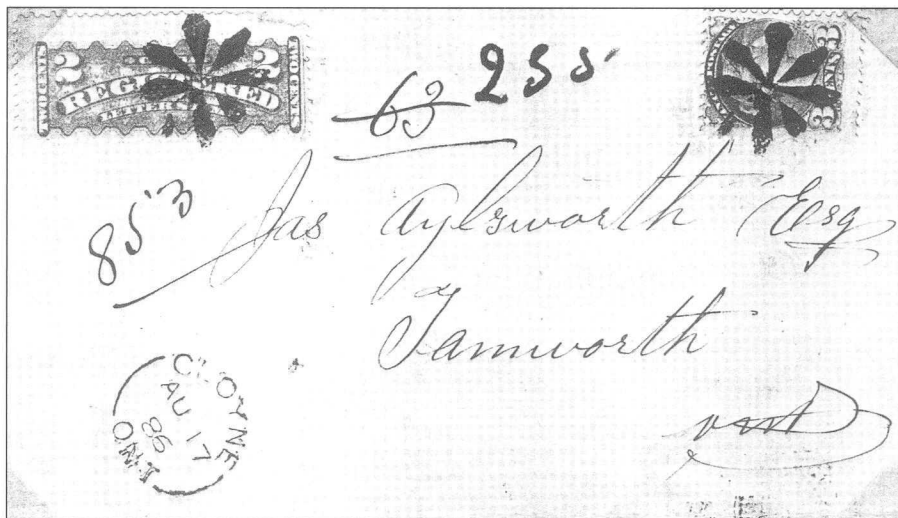 2 REGISTERED 2
LETTER STAMP
63 255
853
Jas Aylsworth Esq
Tamworth
Ont
CLOYNE
AU 17
86
ONT